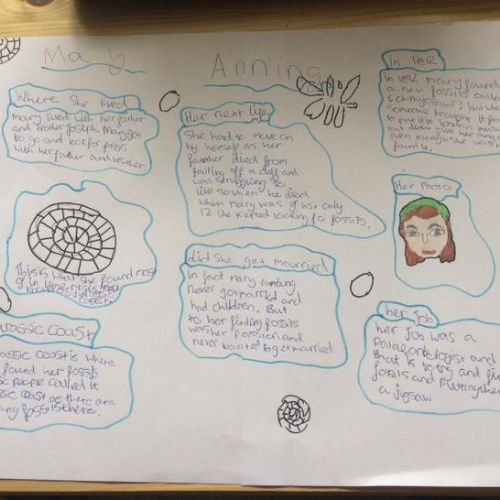 Mary Anning
Where she lived
Mary lived with her father
and brother Joseph. Mary got
to go and look for fossils
with her father and brother.
This is what she found most
of in
Jurassic Coast
assic coast is where
found her fossils
people called it
coast as there are
any fossils there.
Her next life
She had to move on
by herself as her
father died from
falling off a cliff and
was struggling to
live so when he died
when Mary was just only
12 she kept looking for fossils.
did she get married
In fact mary anning
never got married and
had children. But
to her finding fossils
was her passion and
never wanted to get married
In 18
In 18 mary found
a new fossils
ichthyosaur! but
someone brought it
to London
but didn't give her
even though she was
found it.
Her Photo
her Job
her Job was a
and
that is to try and
fossils and putting
a jigsaw